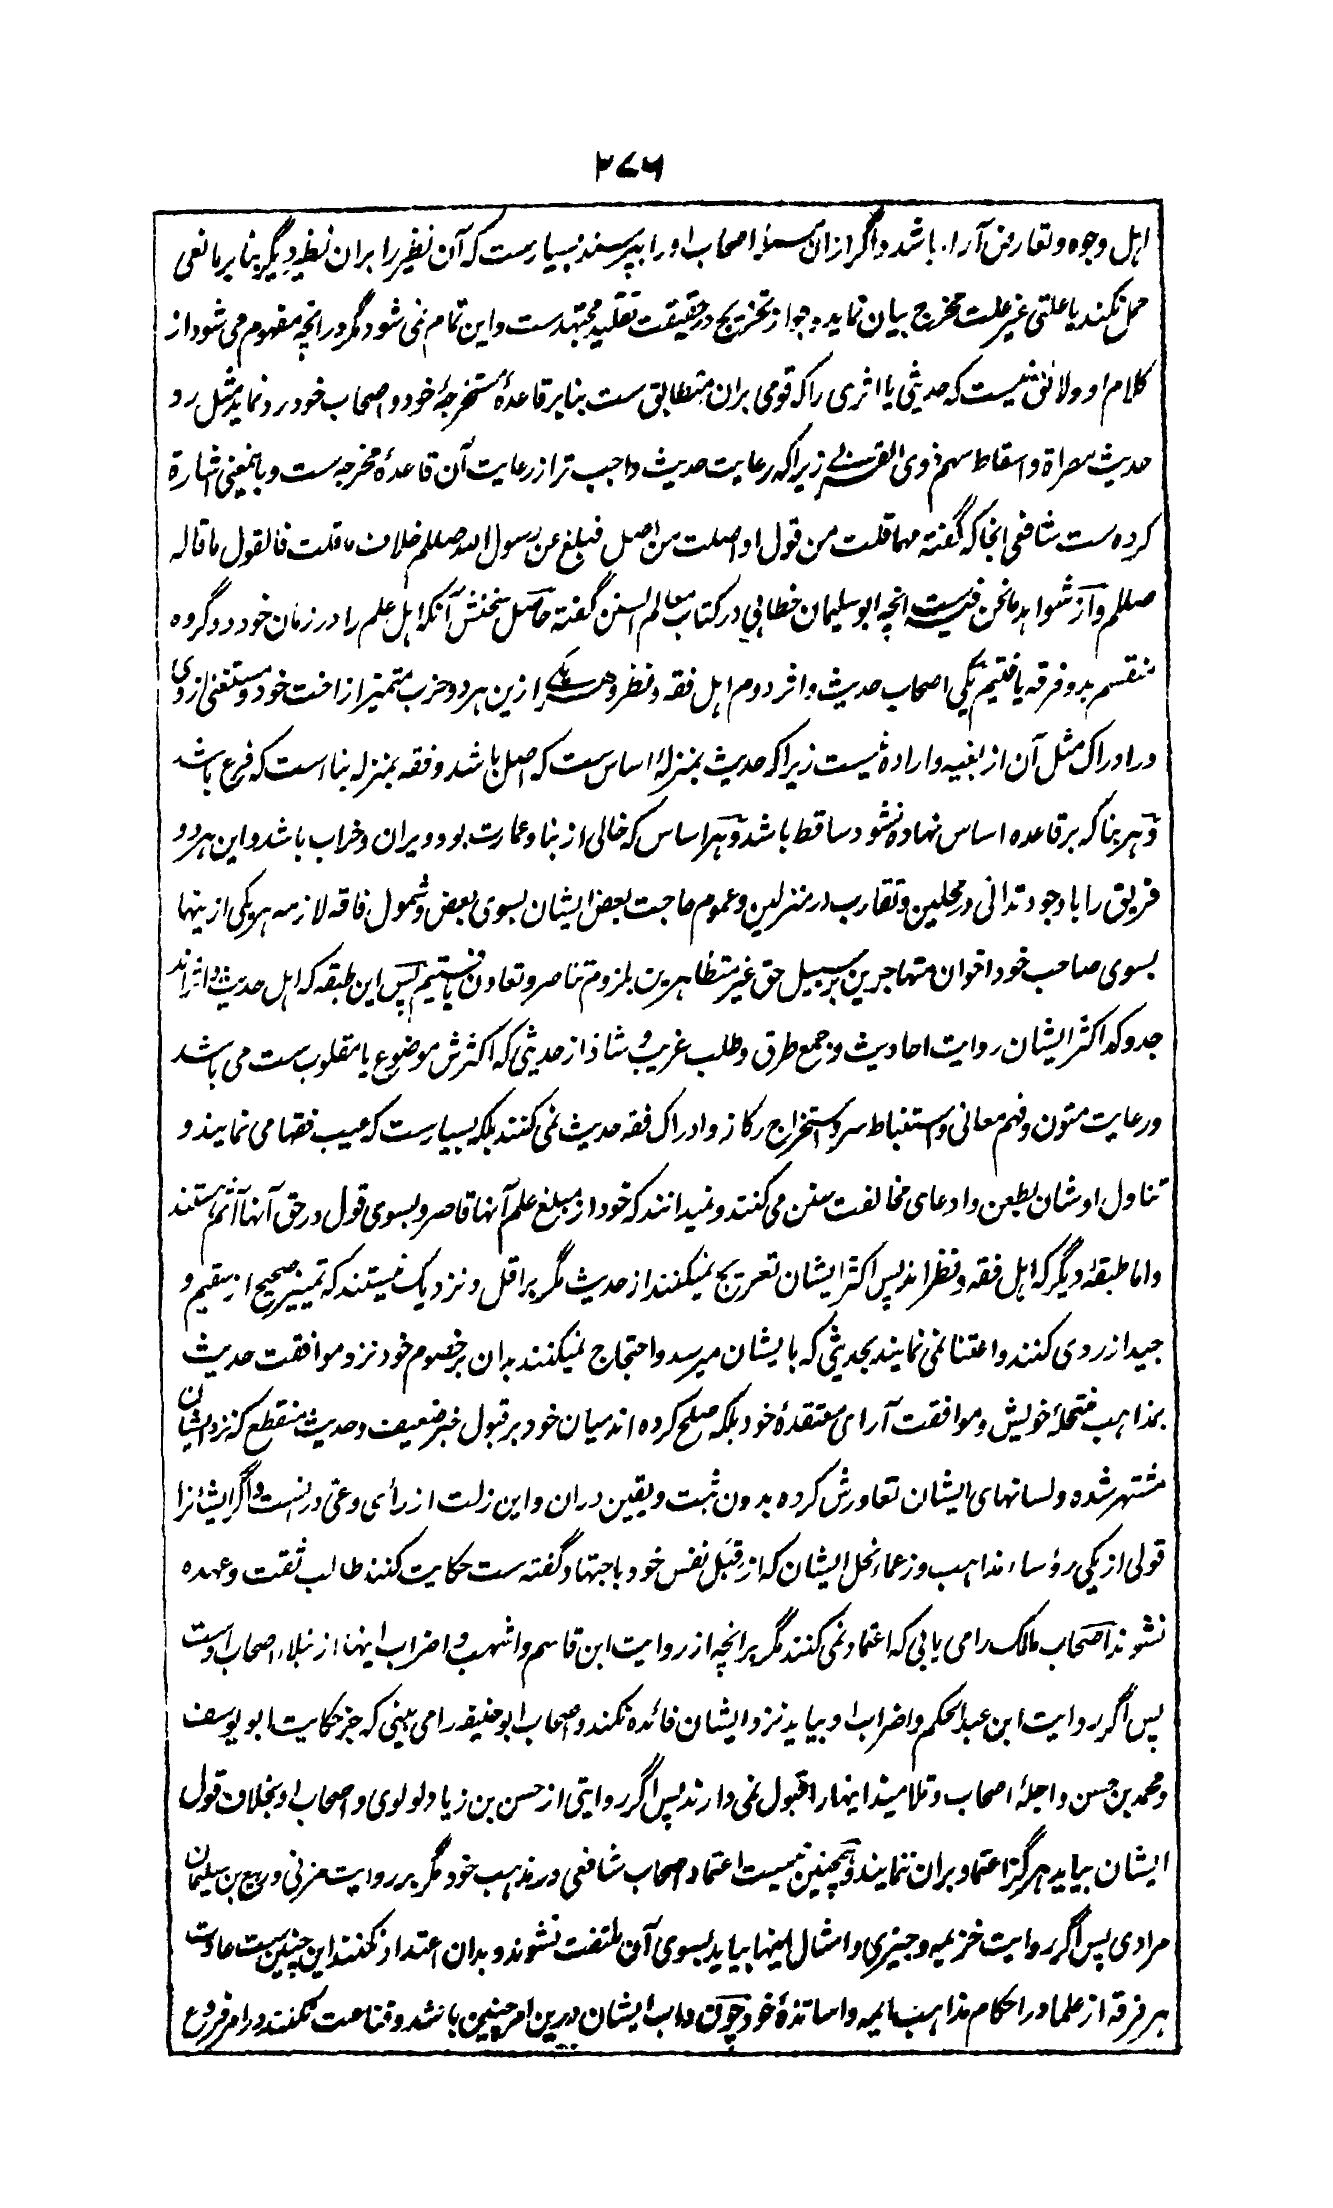 ۲۷۶
اہل وجوہ و تعارض آراء باشد و اگر ازان مسئلہ اصحاب او را بپرسند بسیارست که آن نظیر را بران نظیر دیگر بنا بر مانعی
حمل نکنند یا علتی غیر علت مخرج بیان نماید و جواز تخریج در حقیقت تقلید مجتهدست و این تمام نمی شود مگر در انچه مفهوم می شود از
کلام او و لائق نیست که حدیثی یا اثری را که قومی بران متطابق ست بنا بر قاعدهٔ مستخرجهٔ خود و اصحاب خود رد نماید مثل رد
حدیث مصراة و اسقاط سهم ذوی القربی زیرا که رعایت حدیث واجب تر از رعایت آن قاعدهٔ مخرجه ست و باینمعنی اشارة
کرده ست شافعی انجا که گفته مهما قلت من قول او اصلت من اصل فبلغ عن رسول الله صللم خلاف ما قلت فالقول ما قاله
صللم و از شواهد ما نحن فیه ست انچه ابو سلیمان خطابی در کتاب معالم السنن گفته حاصل سخنش آنکه اهل علم را در زمان خود دو گروه
منقسم بدو فرقه یافتیم یکی اصحاب حدیث و اثر دوم اهل فقه و نظر و هر یکے ازین هر دو حزب متمیز از اخت خود و مستغنی ازوی
در ادراک مثل آن از بغیه و اراده نیست زیرا که حدیث بمنزلهٔ اساس ست که اصل باشد و فقه بمنزله بنا است که فرع باشد
و هر بنا که بر قاعده اساس نهاده نشود ساقط باشد و هر اساس که خالی از بنا و عمارت بود ویران و خراب باشد و این هر دو
فریق را با وجود تدانی در محلین و تقارب در منزلین و عموم حاجت بعض ایشان بسوی بعض و شمول فاقه لازمه هر یکی از ینها
بسوی صاحب خود اخوان متهاجرین بر سبیل حق غیر متظاهرین بلزوم تناصر و تعاون یافتیم پس این طبقه که اهل حدیث و اثر اند
جد و کد اکثر ایشان روایت احادیث و جمع طرق و طلب غریب و شاذ از حدیثی که اکثرش موضوع یا مقلوب ست می باشد
و رعایت متون و فهم معانی و استنباط سر و استخراج رکاز و ادراک فقه حدیث نمی کنند بلکه بسیارست که عیب فقها می نمایند و
تناول اوشان بطعن و ادعای مخالفت سنن می کنند و نمیدانند که خود از مبلغ علم آنها قاصر و بسوی قول در حق آنها آثم هستند
و اما طبقهٔ دیگر که اهل فقه و نظر اند پس اکثر ایشان تعریج نمیکنند از حدیث مگر بر اقل و نزدیک نیستند که تمییز صحیح از سقیم و
جید از ردی کنند و اعتنا نمی نمایند بحدیثی که بایشان میرسد و احتجاج نمیکنند بدان بر خصوم خود نزد موافقت حدیث
بمذاهب منتحلهٔ خویش و موافقت آرای معتقدهٔ خود بلکه صلح کرده اند میان خود بر قبول خبر ضعیف و حدیث منقطع که نزد ایشان
مشتهر شده و لسانهای ایشان تعاورش کرده بدون ثبت و یقین دران و این زلت از رأی و غی در نست و اگر ایشانرا
قولی از یکی رؤساء مذاهب و زعماء نحل ایشان که از قبل نفس خود باجتهاد گفته ست حکایت کنند طالب ثقت و عهده
نشوند اصحاب مالک را می یابی که اعتماد نمی کنند مگر بر انچه از روایت ابن قاسم و اشهب و اضراب اینها از نبلاء اصحاب اوست
پس اگر روایت ابن عبد الحکم و اضراب او بیاید نزد ایشان فائده نکند و اصحاب ابو حنیفه را می بینی که جز حکایت ابو یوسف
و محمد بن حسن و اجلهٔ اصحاب و تلامیذ اینها را قبول نمی دارند پس اگر روایتی از حسن بن زیاد لولوی و اصحاب او بخلاف قول
ایشان بیاید هرگز اعتماد بران ننمایند و همچنین نیست اعتماد اصحاب شافعی در مذهب خود مگر بر روایت مزنی و ربیع بن سلیمان
مرادی پس اگر روایت خزیمه و جیزی و امثال اینها بیاید بسوی آن ملتفت نشوند و بدان اعتداد نکنند این چنین ست عادت
هر فرقه از علما در احکام مذاهب ایمه و اساتذهٔ خود چون داب ایشان درین امر چنین باشد و قناعت نکنند در امر فروع